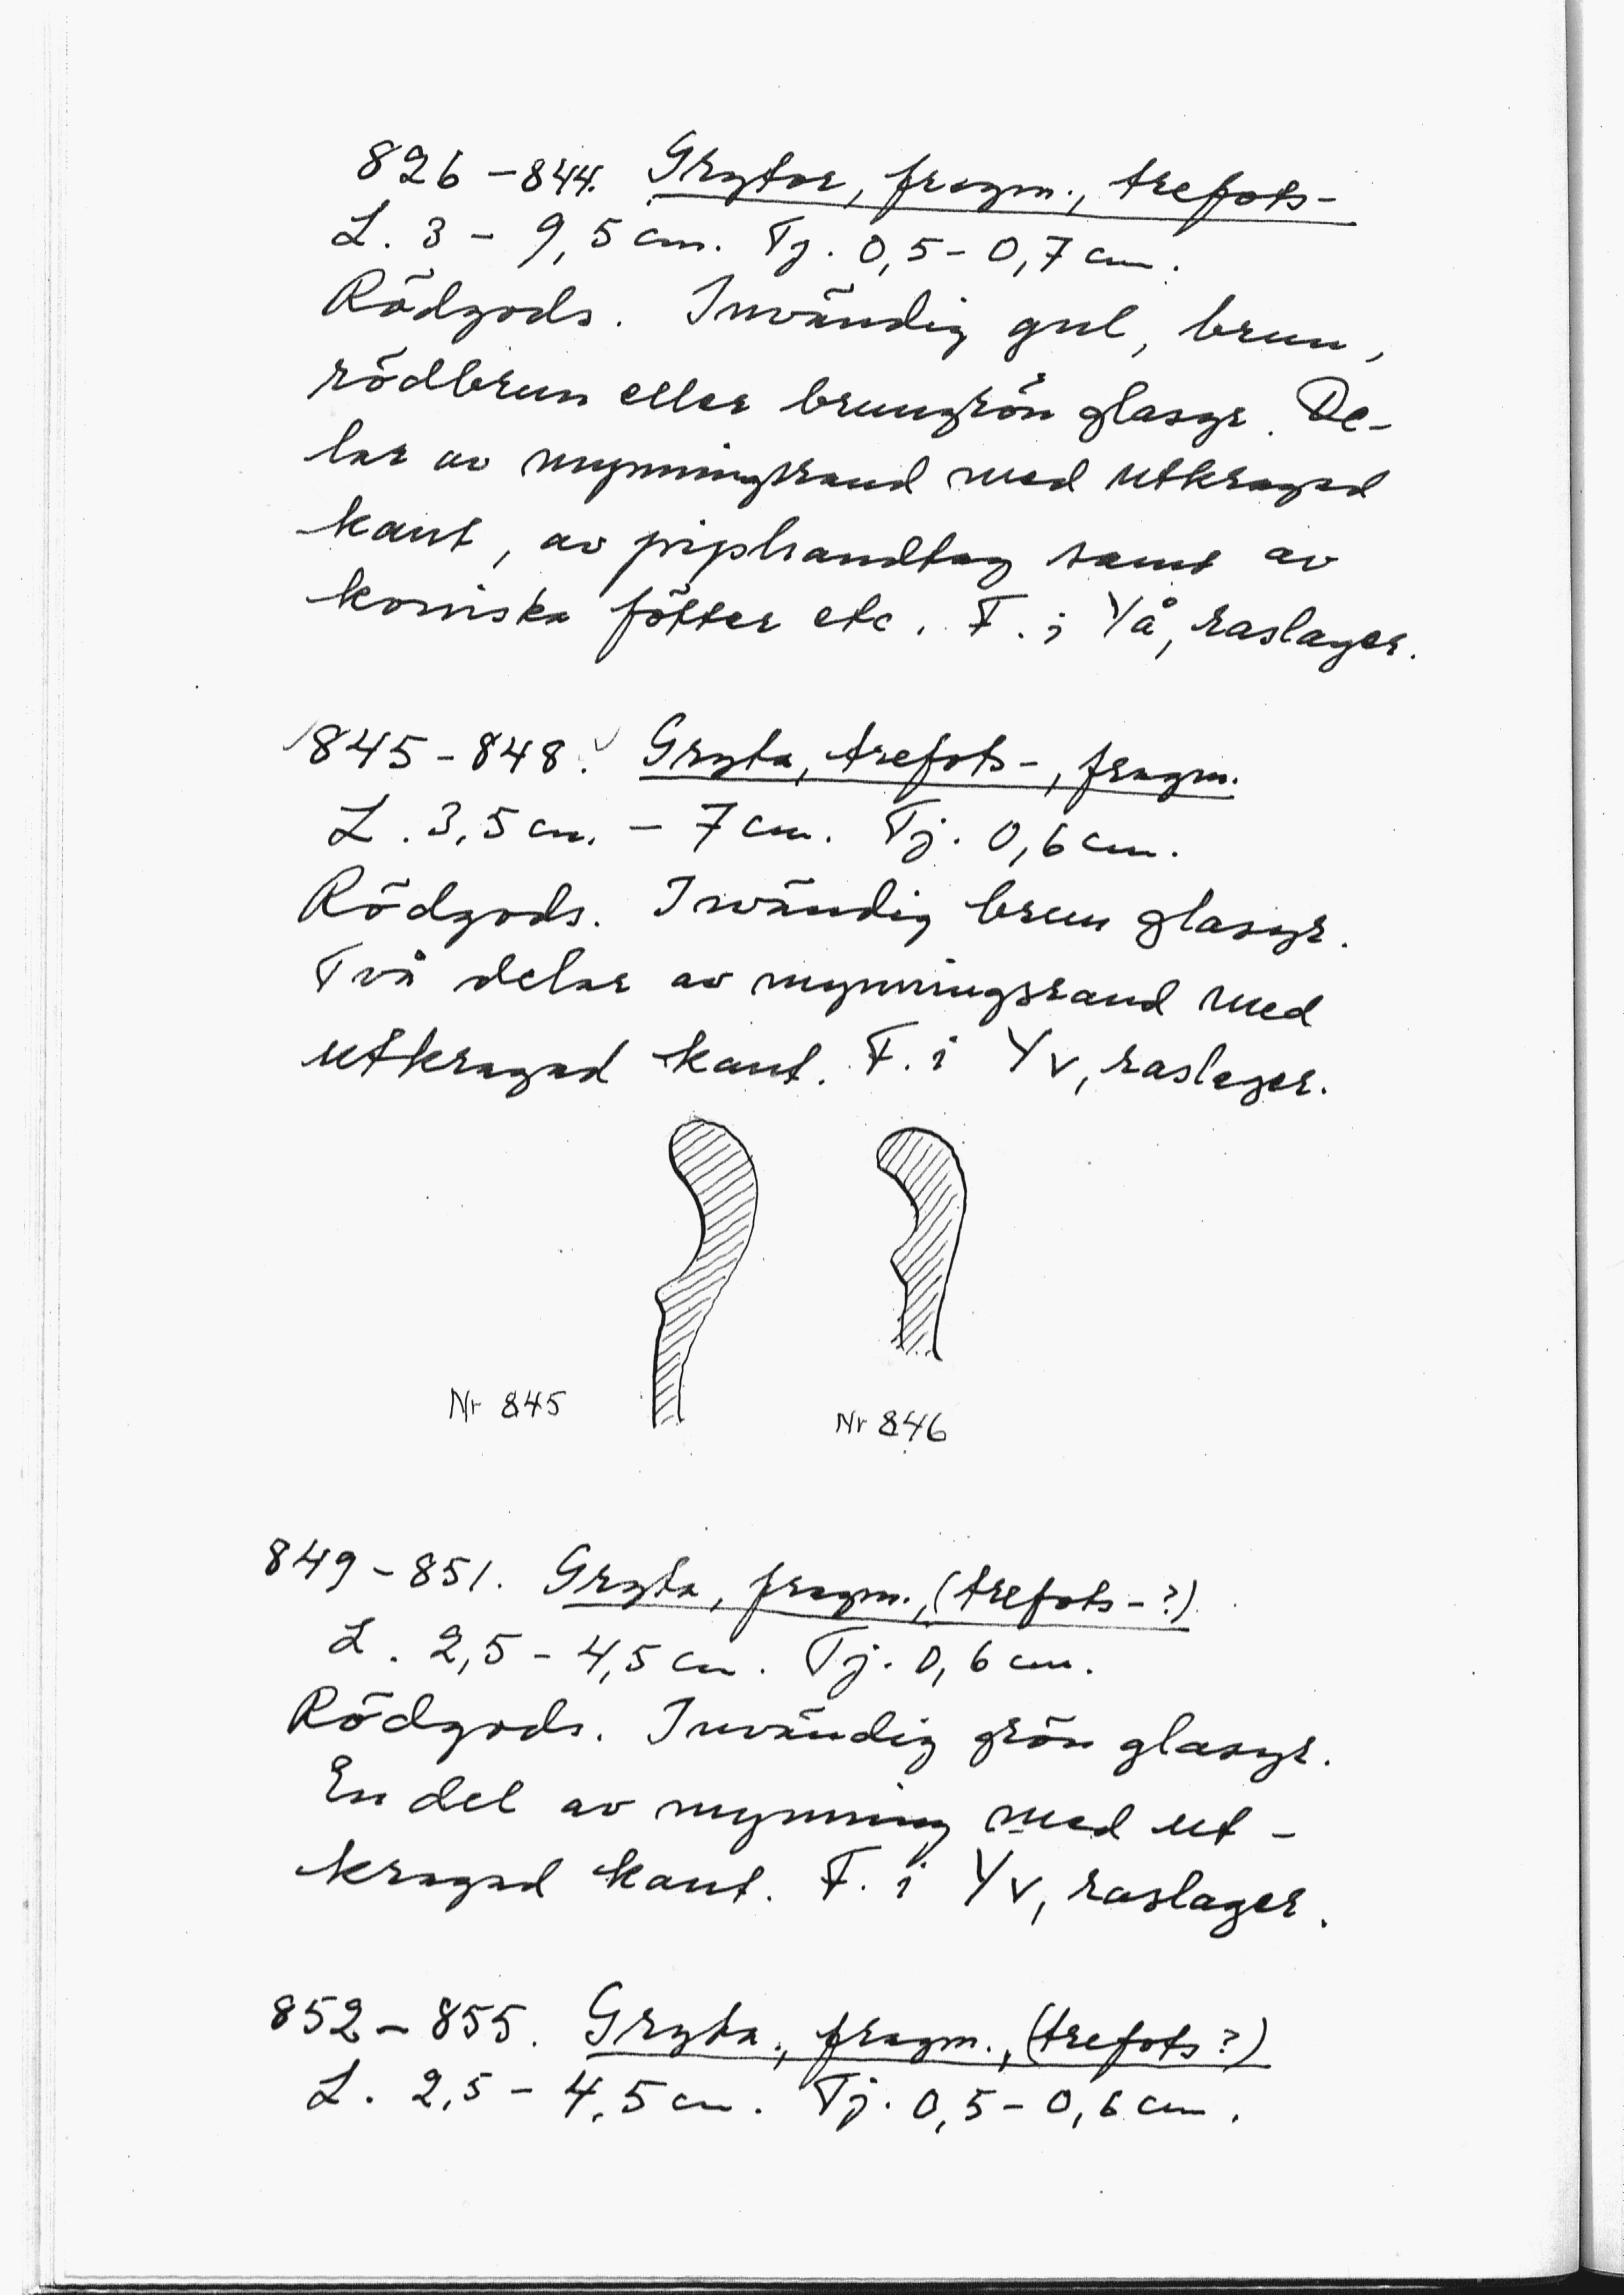 826-844. Grytor, fragm., trefots-
L. 3 - 9,5 cm. Tj. 0,5 - 0,7 cm.
Rödgods. Invändig gul, brun,
rödbrun eller brungrön glasyr. De-
lar av mynningsrand med utkragad
kant, av piphandtag samt av
koniska fötter etc. F. i Yå, raslager.
845-848. Gryta, trefots-, fragm.
L. 3,5 cm. - 7 cm. Tj. 0,6 cm.
Rödgods. Invändig brun glasyr.
Två delar av mynningsrand med
utkragad kant. F. i Yv, raslager.
Nr 845
Nr 846
849-851. Gryta, fragm., (trefots-?)
L. 2,5 - 4,5 cm. Tj. 0,6 cm.
Rödgods. Invändig grön glasyr.
En del av mynning med ut-
kragad kant. F. i Yv, raslager.
852-855. Gryta, fragm., (trefots?)
L. 2,5 - 4,5 cm. Tj. 0,5 - 0,6 cm.